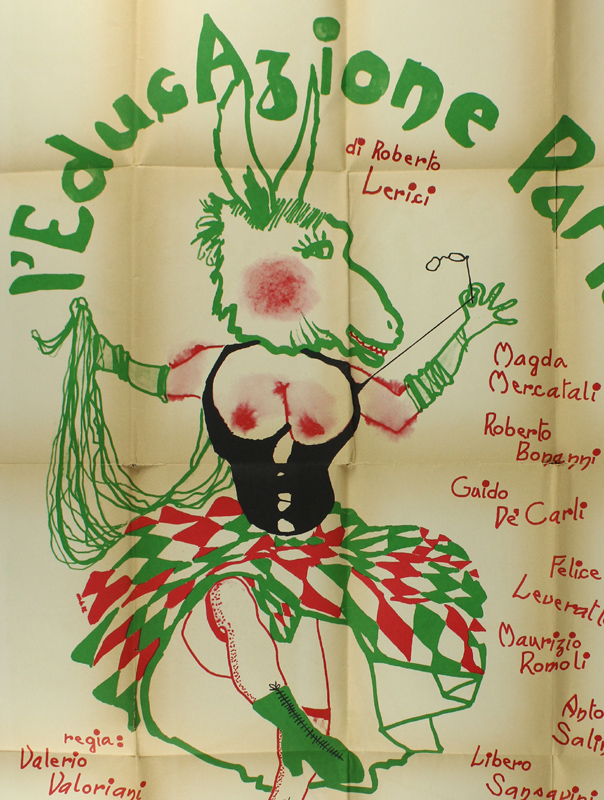 l'EducAzione PAr
di Roberto
Lerici
Magda
Mercatali
Roberto
Bonanni
Guido
De' Carli
Felice
Leverat
Maurizio
Romoli
Anto
Salin
Libero
Sansavini
regia:
Valerio
Valoriani